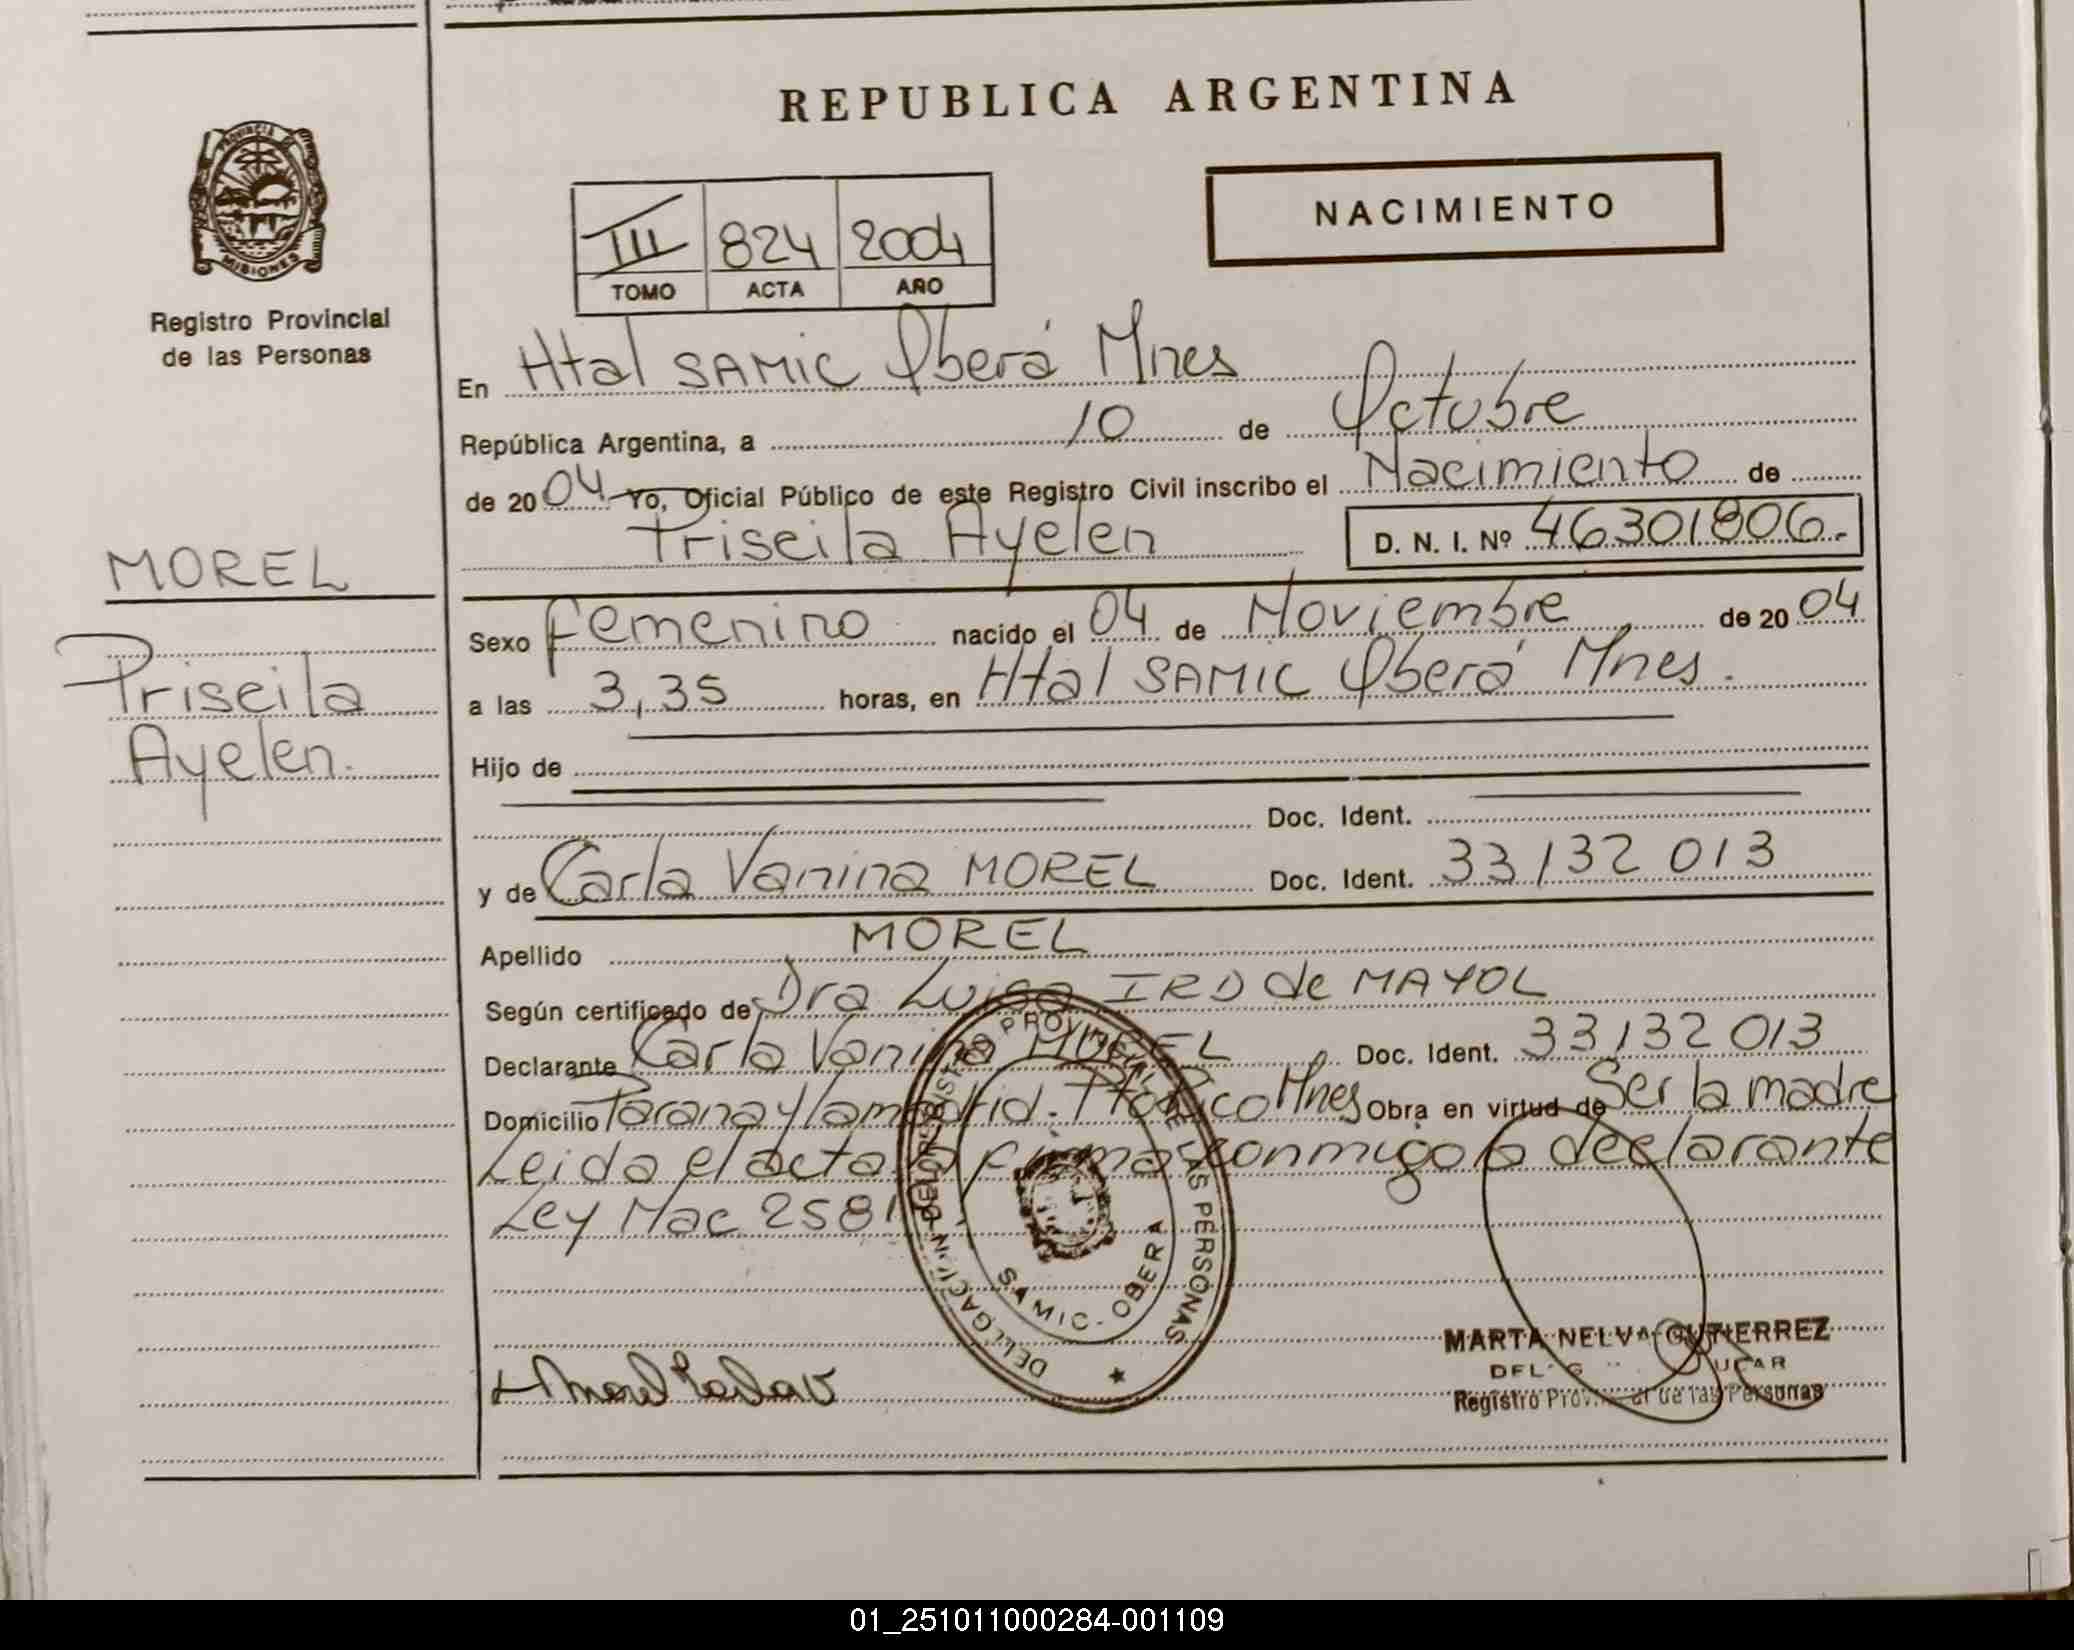 REPUBLICA ARGENTINA
PROVINCIA
MISIONES
Registro Provincial
de las Personas
NACIMIENTO
III 824 2004
TOMO ACTA AÑO
En Htal SAMIC Oberá Mnes
República Argentina, a 10 de Octubre
de 2004 Yo, Oficial Público de este Registro Civil inscribo el Nacimiento de
Priscila Ayelen D. N. I. Nº 46301806.-
MOREL
Priscila
Ayelen.
Sexo femenino nacido el 04 de Noviembre de 2004
a las 3,35 horas, en Htal SAMIC Oberá Mnes.
Hijo de
Doc. Ident.
y de Carla Vanina MOREL Doc. Ident. 33132013
Apellido MOREL
Según certificado de Dra Luisa IRD de MAYOL
Declarante Carla Vanina MOREL Doc. Ident. 33132013
Domicilio Parana y lamadrid. Pto Rico Mnes Obra en virtud de Ser la madre
Leida el acta firma conmigo la declarante
Ley Nac 2581
DELEGACION DEL REGISTRO PROVINCIAL DE LAS PERSONAS
SAMIC - OBERA
Morel
MARTA NELVA GUTIERREZ
Registro Provincial de las Personas
01_251011000284-001109